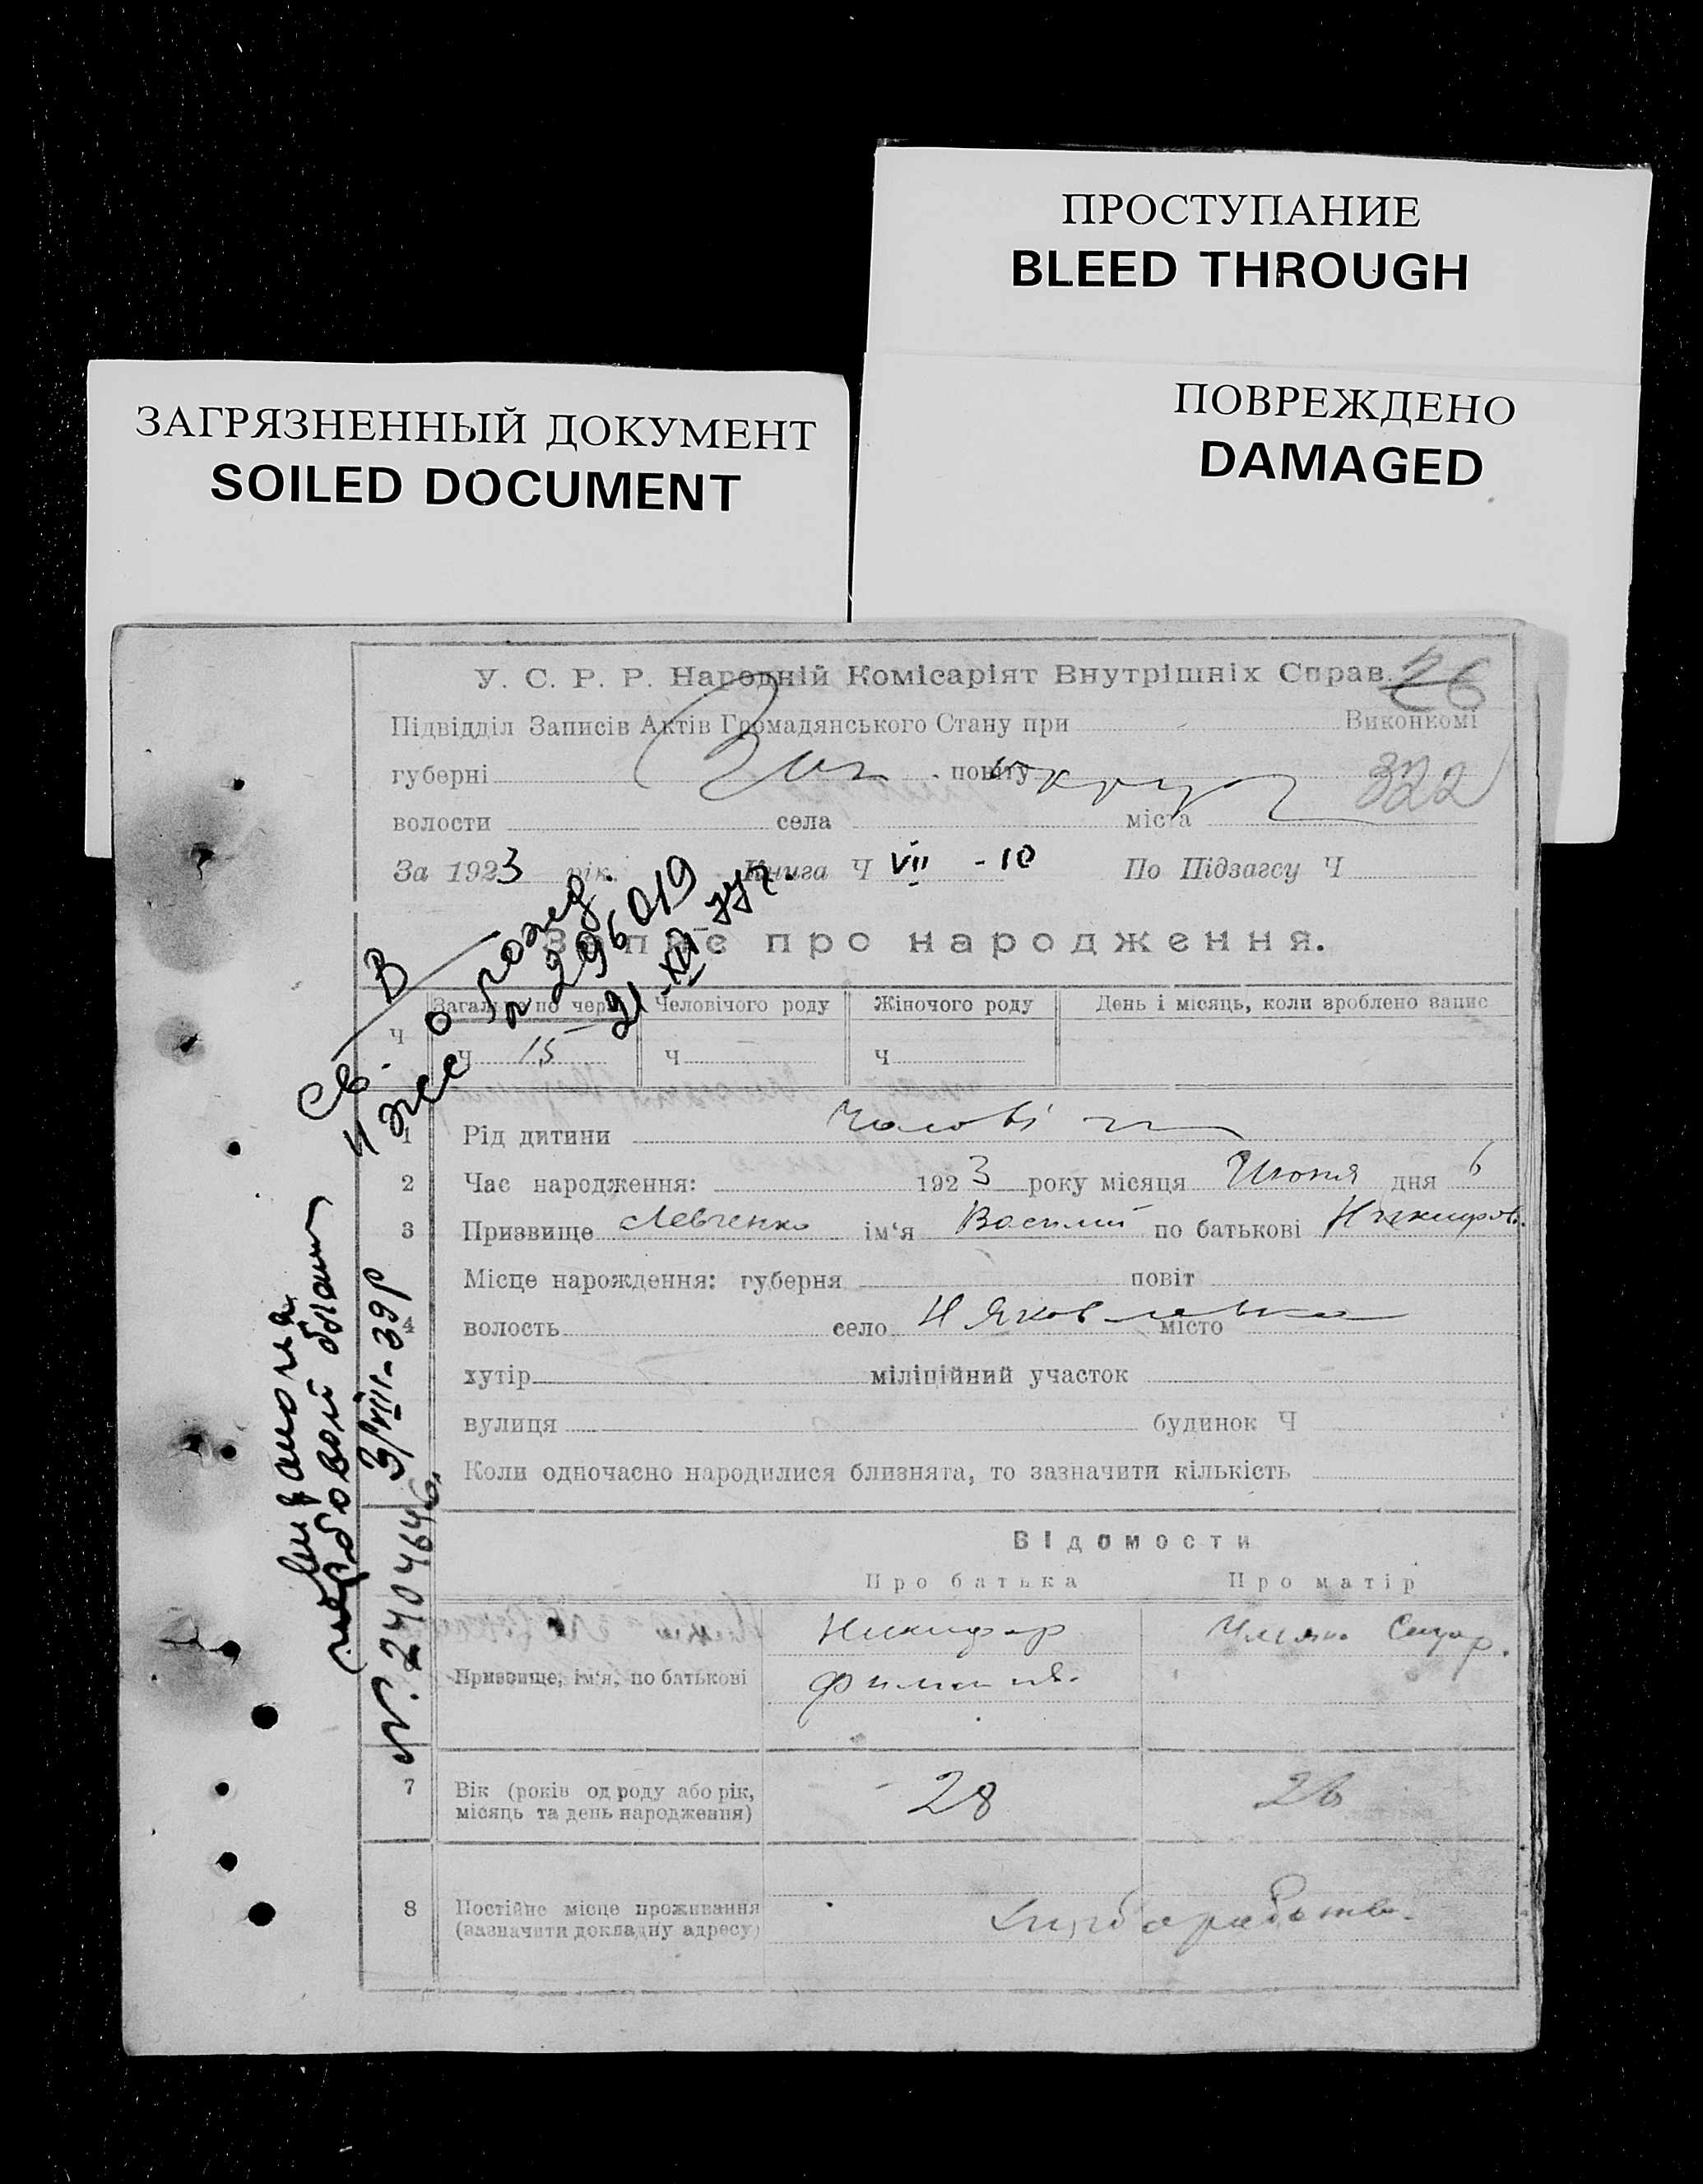 ПРОСТУПАНИЕ
BLEED THROUGH
ПОВРЕЖДЕНО
DAMAGED
ЗАГРЯЗНЕННЫЙ ДОКУМЕНТ
SOILED DOCUMENT
У. С. Р. Р. Народній Комісаріят Внутрішніх Справ. 26
Підвідділ Записів Актів Громадянського Стану при Виконкомі
губерні повіту 322
волости села міста
За 1923 рік. Книга Ч VII - 10 По Підзагсу Ч
Запис про народження.
Св. В
о рожд.
№ 296019
21-XII
Ч Загально по чер Человічого роду Жіночого роду День і місяць, коли зроблено запис
Ч 15 Ч Ч
1 Рід дитини
2 Час народження: 1923 року місяця Июня дня 6
3 Призвище Левченко ім'я Василий по батькові Никифоров.
Місце нарождення: губерня повіт
4 волость село Н Яковлевка місто
хутір міліційний участок
вулиця будинок Ч
Коли одночасно народилися близнята, то зазначити кількість
№ 2404646. 3/VIII-39р
Відомости
Про батька Про матір
Призвище, ім'я, по батькові
Никифор
Ульяна
7 Вік (років од роду або рік, 28 26
місяць та день народження)
8 Постійне місце проживання
(зазначити докладну адресу)